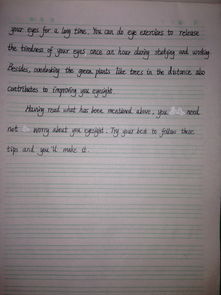 your eyes for a long time. You can do eye exercises to release
the tiredness of your eyes once an hour during studying and working
Besides, overlooking the green plants like trees in the distance also
contributes to improving you eyesight.
Having read what has been mentioned above, you need
not worry about you eyesight. Try your best to follow these
tips and you'll make it.